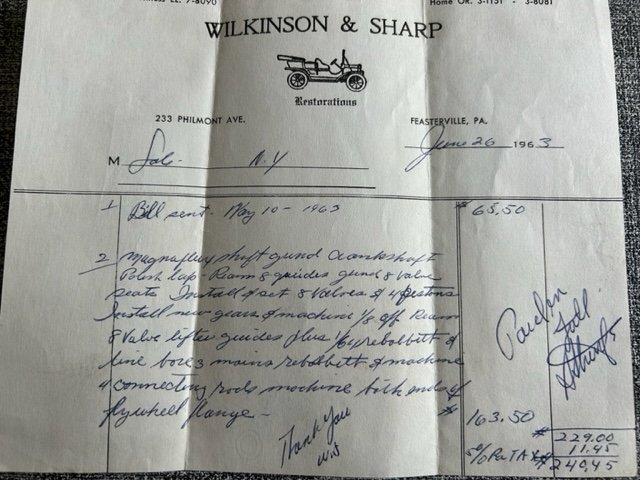 Business EL. 7-8090 Home OR. 3-1151 - 3-8081
WILKINSON & SHARP
Restorations
233 PHILMONT AVE. FEASTERVILLE, PA.
June 26 1963
M Sol- N.Y
1 Bill sent - May 10 - 1963 $65.50
2 Magnaflux shaft grind crankshaft
Polish Cap - Ream 8 guides grind 8 valve
seats Install & set 8 Valves & 4 pistons
Install new gears & machine 1/8 off Ream
8 Valve lifter guides plus 1/64 rebabbitt &
line bore 3 mains rebabbitt & machine
4 connecting rods machine both ends of
flywheel flange - $163.50
Paid in
full
Thank You
W.S
$229.00
5% Pa TAX $11.45
240.45